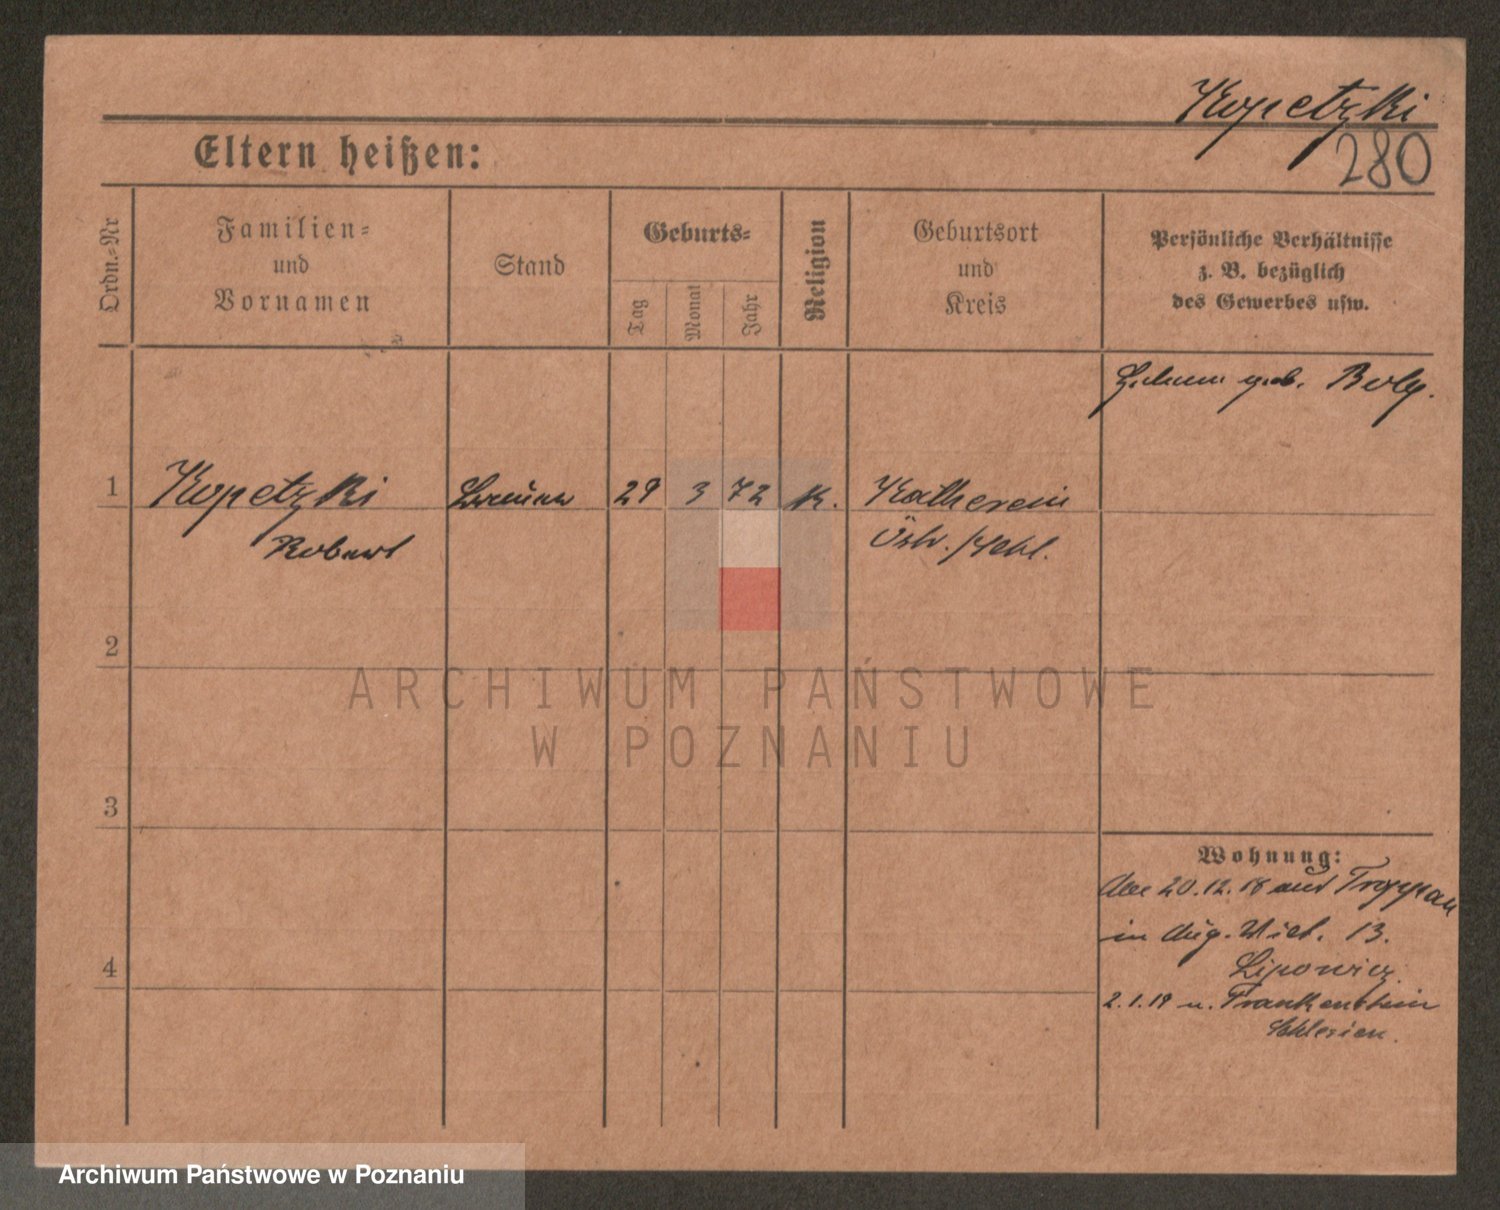 Kopetzki
280
Eltern heißen:
Ordn.-Nr
Familien-
und
Vornamen
Stand
Geburts-
Tag
Monat
Jahr
Religion
Geburtsort
und
Kreis
Persönliche Verhältnisse
z. B. bezüglich
des Gewerbes usw.
geb.
1
Kopetzki
29
3
72
K.
Katherein
Robert
Östr. Schl.
2
ARCHIWUM PAŃSTWOWE
W POZNANIU
3
Wohnung:
20.12.18 aus Troppau
in Aug. Vict. 13.
Lipowicz
4
2.1.19 n. Frankenstein
Schlesien.
Archiwum Państwowe w Poznaniu